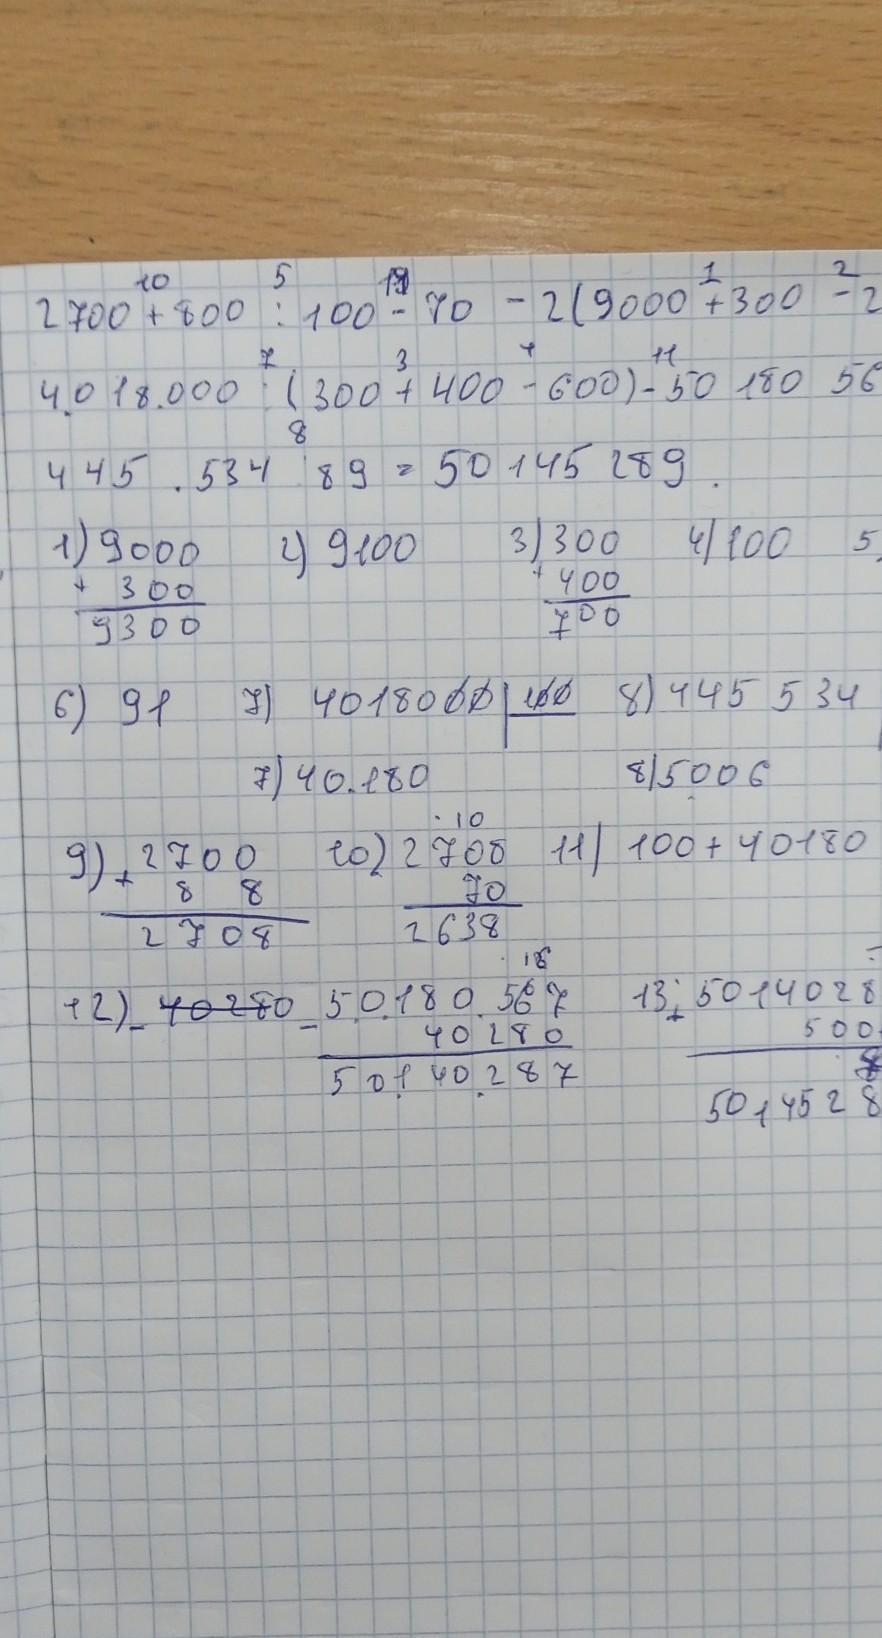 10 5 11 1 2
2700 + 800 : 100 - 70 - 2(9000 + 300 - 2
7 3 4 11
4.018.000 : (300 + 400 - 600) - 50 180 56
8
445.534 : 89 = 50 145 289.
1) 9000 2) 9100 3) 300 4) 100 5
+ 300 + 400
9300 700
6) 91 7) 4018000 | 100 8) 445 534
7) 40.180 8) 5006
. 10
9) + 2700 10) 2708 11) 100 + 40180
8 8 70
2708 2638
. 16
12) - 40280 - 50.180.567 13. + 5014028
40280 500
50140.287 8
5014528